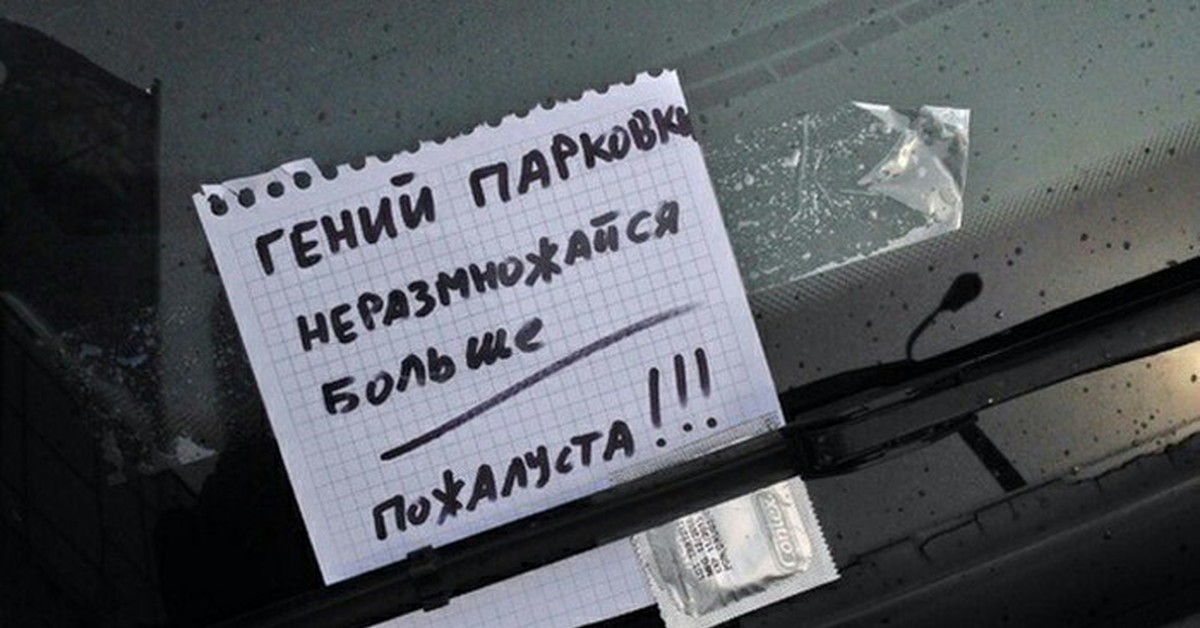 ГЕНИЙ ПАРКОВКИ
НЕРАЗМНОЖАЙСЯ
БОЛЬШЕ
ПОЖАЛУСТА!!!
contex